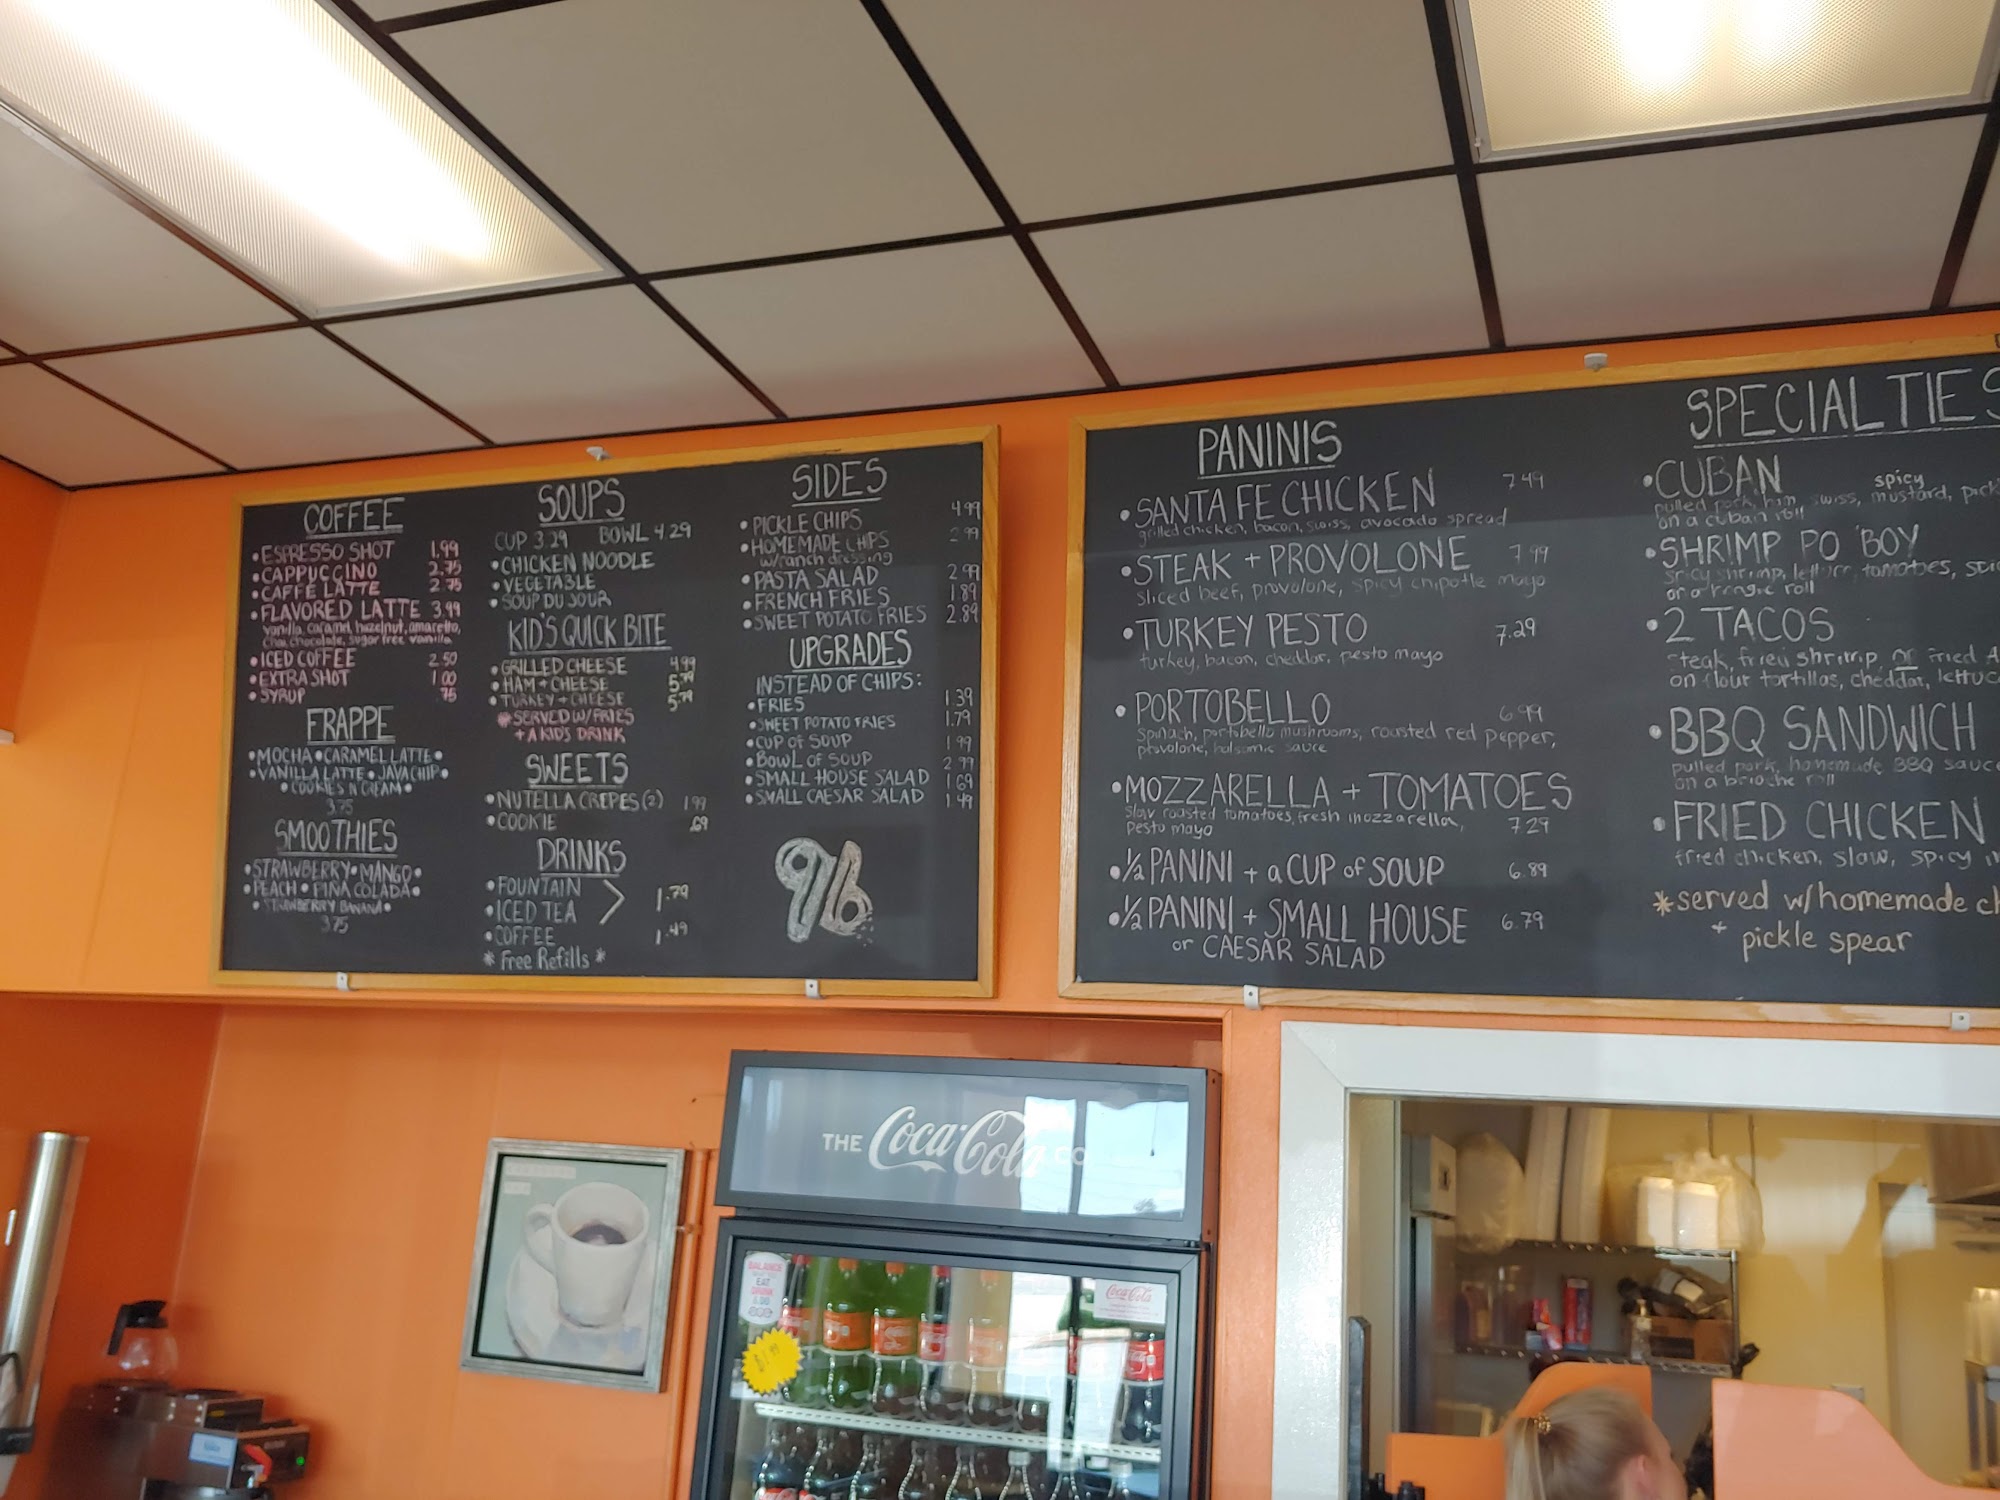 COFFEE
• ESPRESSO SHOT 1.99
• CAPPUCCINO 2.75
• CAFFE LATTE 2.75
• FLAVORED LATTE 3.99
vanilla, caramel, hazelnut, amaretto,
chai, chocolate, sugar free vanilla
• ICED COFFEE 2.50
• EXTRA SHOT 1.00
• SYRUP .75
FRAPPE
• MOCHA • CARAMEL LATTE •
• VANILLA LATTE • JAVA CHIP •
• COOKIES N CREAM •
3.75
SMOOTHIES
• STRAWBERRY • MANGO •
• PEACH • PIÑA COLADA •
• STRAWBERRY BANANA •
3.75
SOUPS
CUP 3.29 BOWL 4.29
• CHICKEN NOODLE
• VEGETABLE
• SOUP DU JOUR
KID'S QUICK BITE
• GRILLED CHEESE 4.99
• HAM + CHEESE 5.79
• TURKEY + CHEESE 5.79
* SERVED W/ FRIES
+ A KID'S DRINK
SWEETS
• NUTELLA CREPES (2) 1.99
• COOKIE .69
DRINKS
• FOUNTAIN
• ICED TEA > 1.79
• COFFEE 1.49
* Free Refills *
SIDES
• PICKLE CHIPS 4.99
• HOMEMADE CHIPS 2.99
w/ranch dressing
• PASTA SALAD 2.99
• FRENCH FRIES 1.89
• SWEET POTATO FRIES 2.89
UPGRADES
INSTEAD OF CHIPS:
• FRIES 1.39
• SWEET POTATO FRIES 1.79
• CUP OF SOUP 1.99
• BOWL OF SOUP 2.99
• SMALL HOUSE SALAD 1.69
• SMALL CAESAR SALAD 1.49
96
PANINIS
• SANTA FE CHICKEN 7.49
grilled chicken, bacon, swiss, avocado spread
• STEAK + PROVOLONE 7.99
sliced beef, provolone, spicy chipotle mayo
• TURKEY PESTO 7.29
turkey, bacon, cheddar, pesto mayo
• PORTOBELLO 6.99
spinach, portobello mushrooms, roasted red pepper,
provolone, balsamic sauce
• MOZZARELLA + TOMATOES
slow roasted tomatoes, fresh mozzarella, 7.29
pesto mayo
• ½ PANINI + a CUP of SOUP 6.89
• ½ PANINI + SMALL HOUSE 6.79
or CAESAR SALAD
SPECIALTIES
• CUBAN
spicy
pulled pork, ham, swiss, mustard, pick
on a cuban roll
• SHRIMP PO 'BOY
spicy shrimp, lettuce, tomatoes,
on a hoagie roll
• 2 TACOS
steak, fried shrimp, or fried
on flour tortillas, cheddar, lettuc
• BBQ SANDWICH
pulled pork, homemade BBQ sauce
on a brioche roll
• FRIED CHICKEN
fried chicken, slaw, spicy
* served w/homemade ch
+ pickle spear
THE Coca-Cola CO
BALANCE
EAT
DRINK
& DO
Coca-Cola